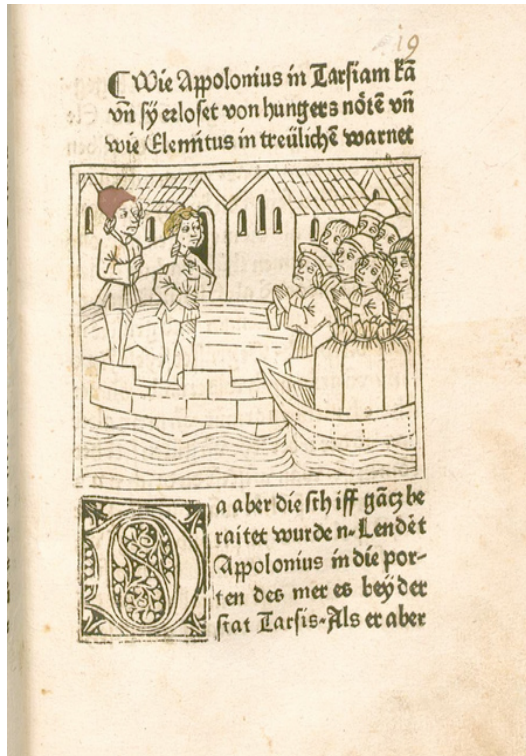 19
¶ Wie Appolonius in Tarsiam kā
vn̄ sy erloset von hungers nötē vn̄
wie Elemitus in treülichē warnet
Da aber die sch iff gācz be
raitet wurde n⸗Lendēt
Appolonius in die por⸗
ten des mer es bey der
stat Tarsis⸗Als er aber